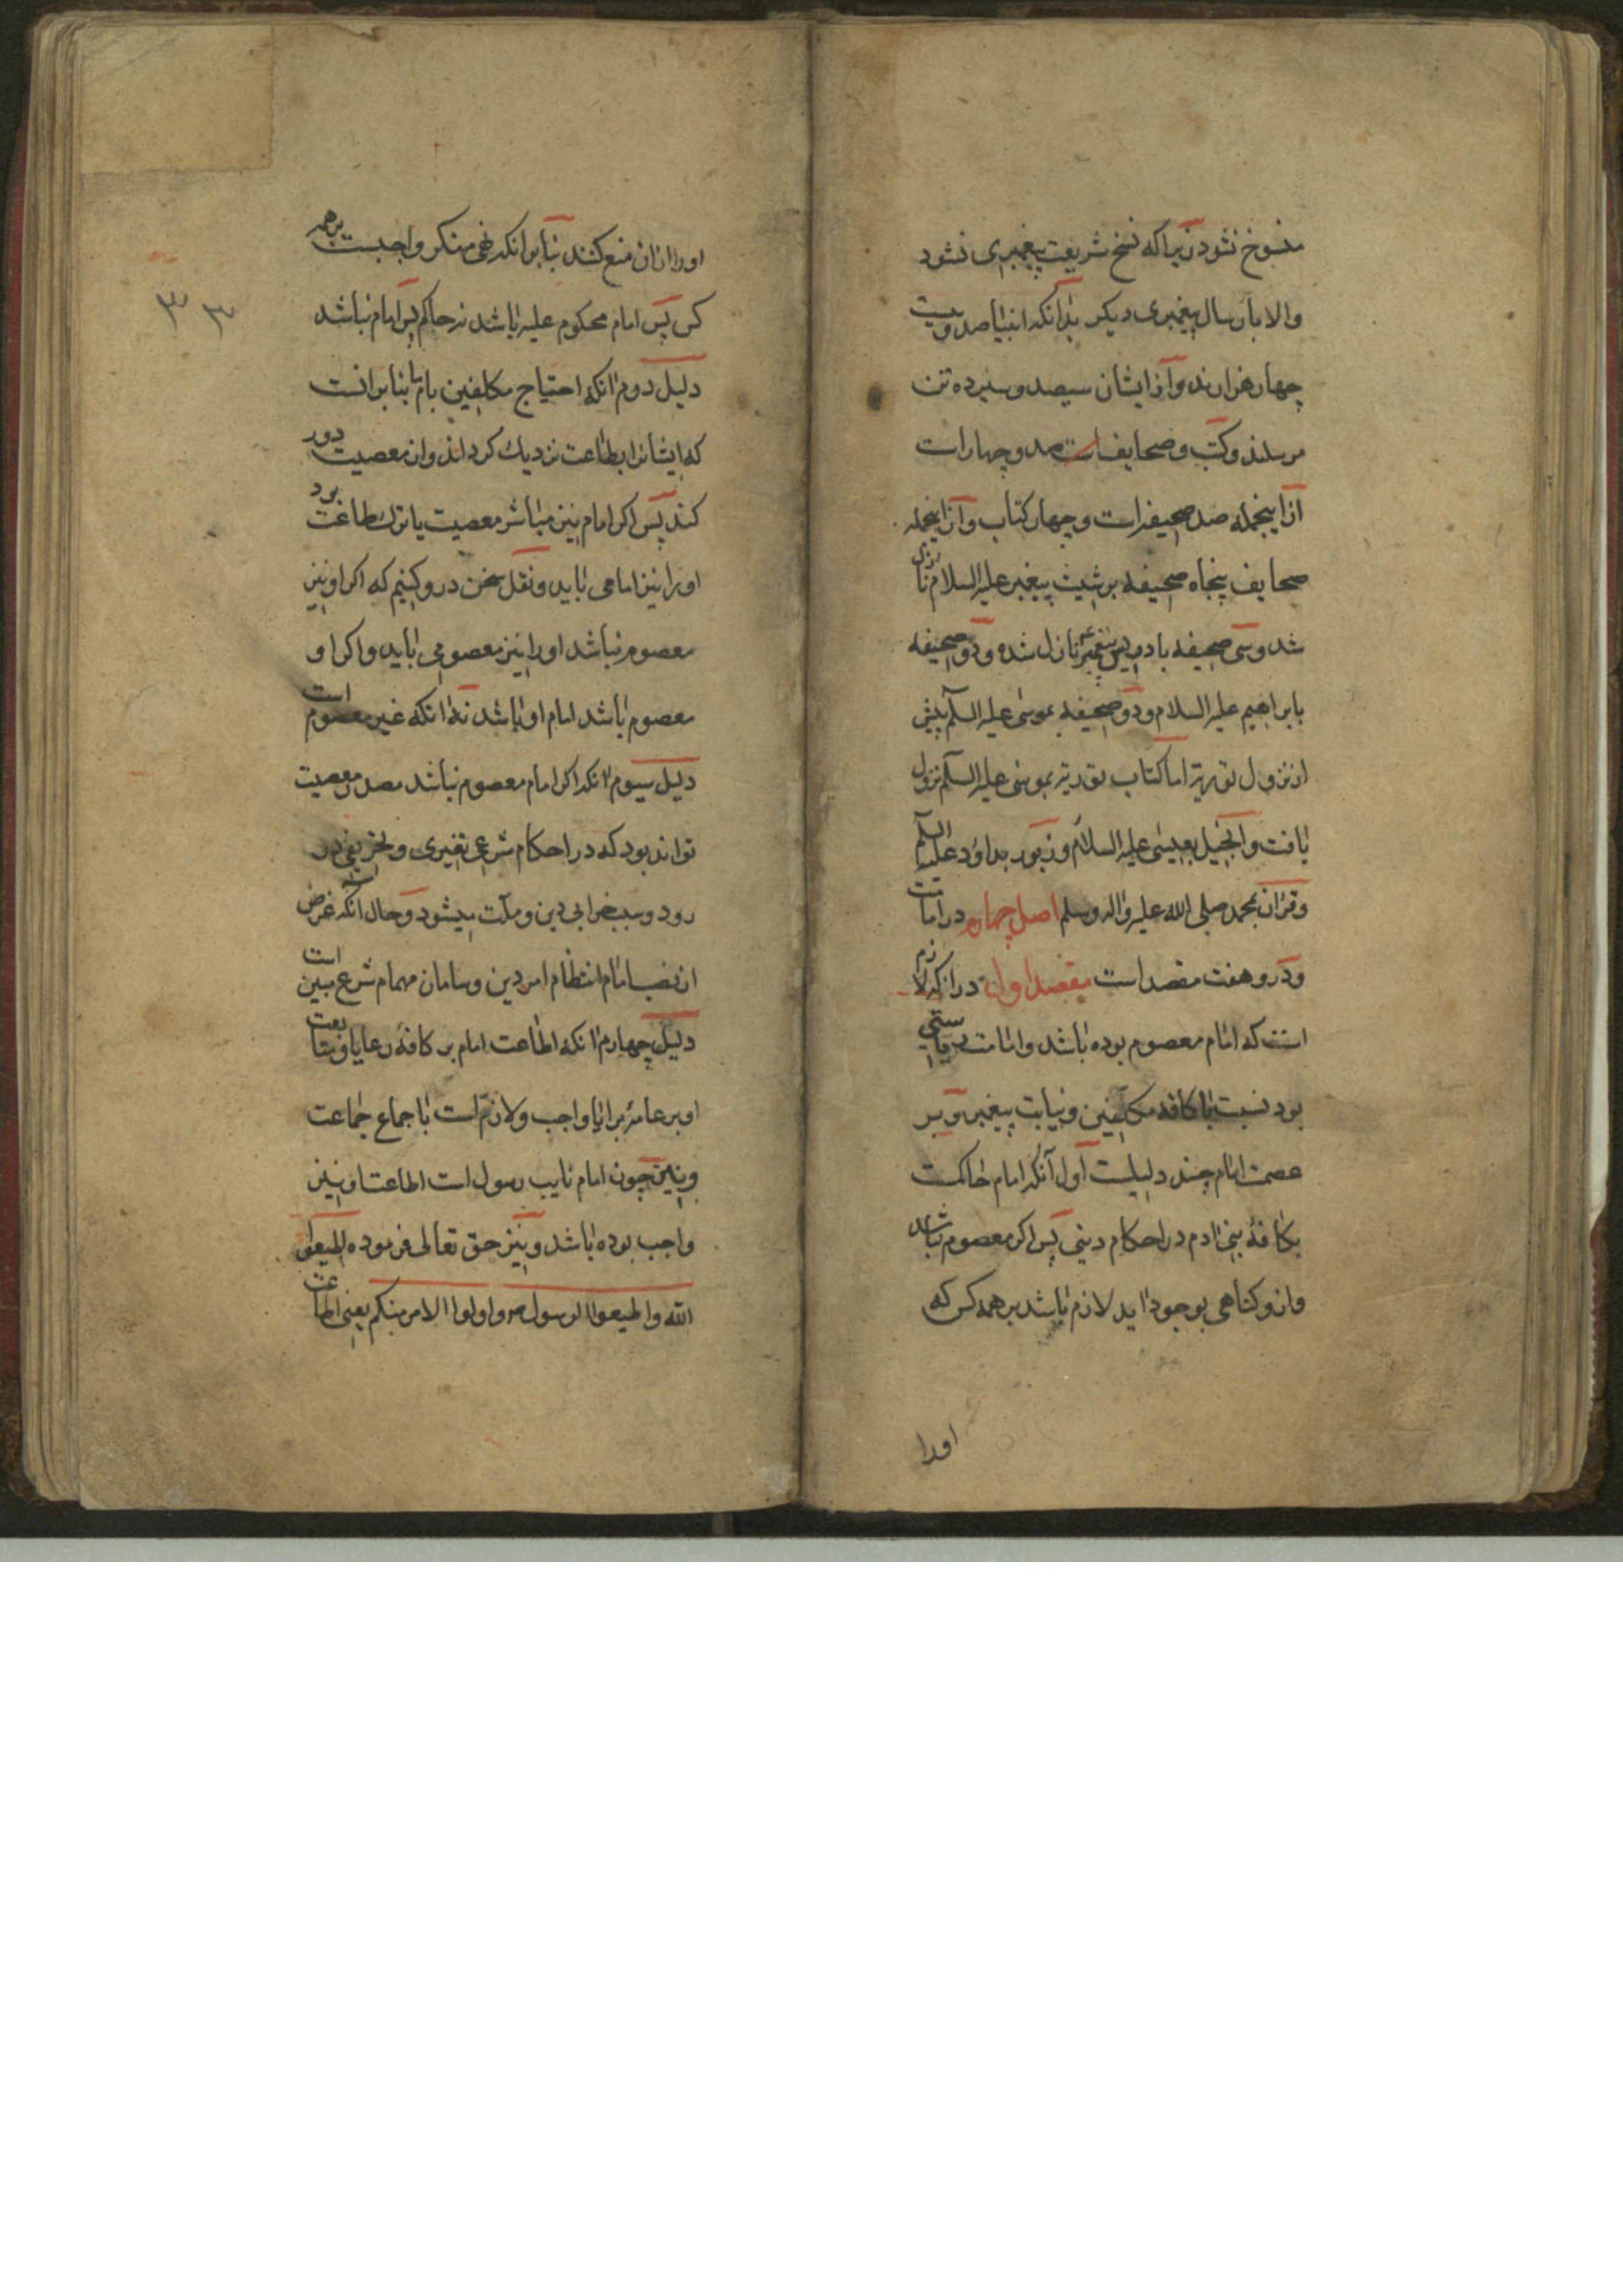 منسوخ نشود زیرا که نسخ شریعت پیغمبری نشود
والا بارسال پیغمبری دیکر بدانکه انبیا صد و بیست
چهار هزارند و از ایشان سیصد و سیزده تن
مرسلند و کتب و صحایف است صد و چهار است
از اینجمله صد صحیفه است و چهار کتاب و از اینجمله
صحایف پنجاه صحیفه بر شیث پیغمبر علیه السلام نازل
شد و سی صحیفه بادریس پیغمبر نازل شده و ده صحیفه
بابراهیم علیه السلام و ده صحیفه بموسی علیه السلم پیش
از نزول توریة اما کتاب توریة بموسی علیه السلم نزول
یافت و انجیل بعیسی علیه السلام و زبور بداود علیه السلم
و قرآن بمحمد صلی الله علیه واله وسلم اصل چهارم در امامت
و درو هفت مقصد است مقصد اول در انکه لازم
است که امام معصوم بوده باشد و امامت ریاستی
بود نسبت با کافه مکلفین و نیابت پیغمبر و بر
عصمت امام چند دلیلست اول آنکه امام حاکمست
بکافهٔ بنی ادم در احکام دینی پس اکر معصوم نباشد
و ازو کناهی بوجود اید لازم باشد بر همه کس که
اورا
اورا ازان منع کنند بنابر انکه نهی منکر واجبست بر همه
کس پس امام محکوم علیه باشد نه حاکم پس امام نباشد
دلیل دوم انکه احتیاج مکلفین بامام بنابر انست
که ایشانرا بطاعت نزدیك کرداند و از معصیت دور
کند پس اکر امام نیز مباشر معصیت یا ترك طاعت بود
اورا نیز امامی باید و نقل سخن درو کنیم که اکر او نیز
معصوم نباشد اورا نیز معصومی باید و اکر او
معصوم باشد امام او باشد نه انکه غیر معصوم است
دلیل سیوم انکه اکر امام معصوم نباشد مصدر معصیت
تواند بود که در احکام شرعی تغیری و تحریفی در
رود و سبب خرابی دین و ملت میشود و حال آنکه غرض
از نصب امام انتظام امر دین و سامان مهام شرع مبین است
دلیل چهارم انکه اطاعت امام بر کافهٔ رعایا و متابعت
او بر عامهٔ برایا واجب و لازم است باجماع جماعت
و نیز چون امام نایب رسول است اطاعت او نیز
واجب بوده باشد و نیز حق تعالی فرموده اطیعوا
الله واطیعوا الرسول واولوا الامر منکم یعنی اطاعت
٣٣